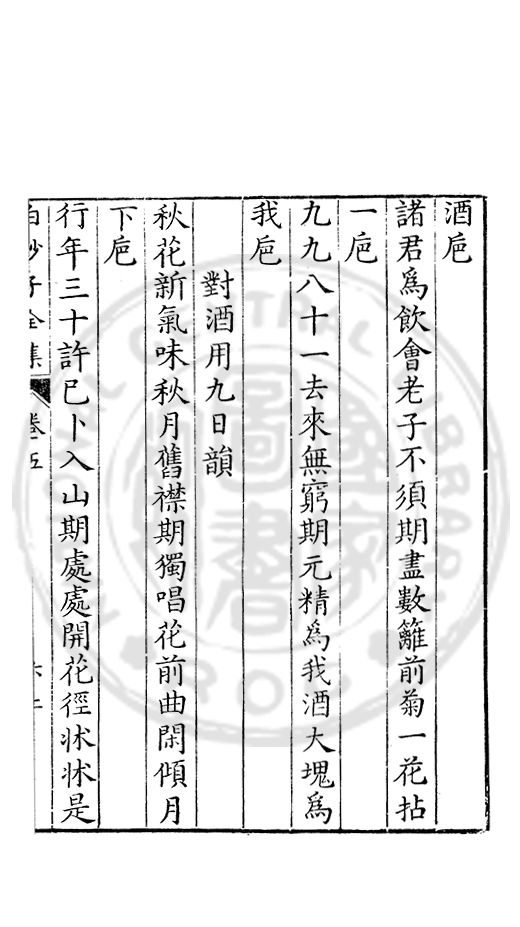 酒巵
諸君爲飲會老子不須期盡數籬前菊一花拈
一巵
九九八十一去來無窮期元精爲我酒大塊爲
我巵
對酒用九日韻
秋花新氣味秋月舊襟期獨唱花前曲閑傾月
下巵
行年三十許已卜入山期處處開花徑牀牀是
白沙子全集 卷五